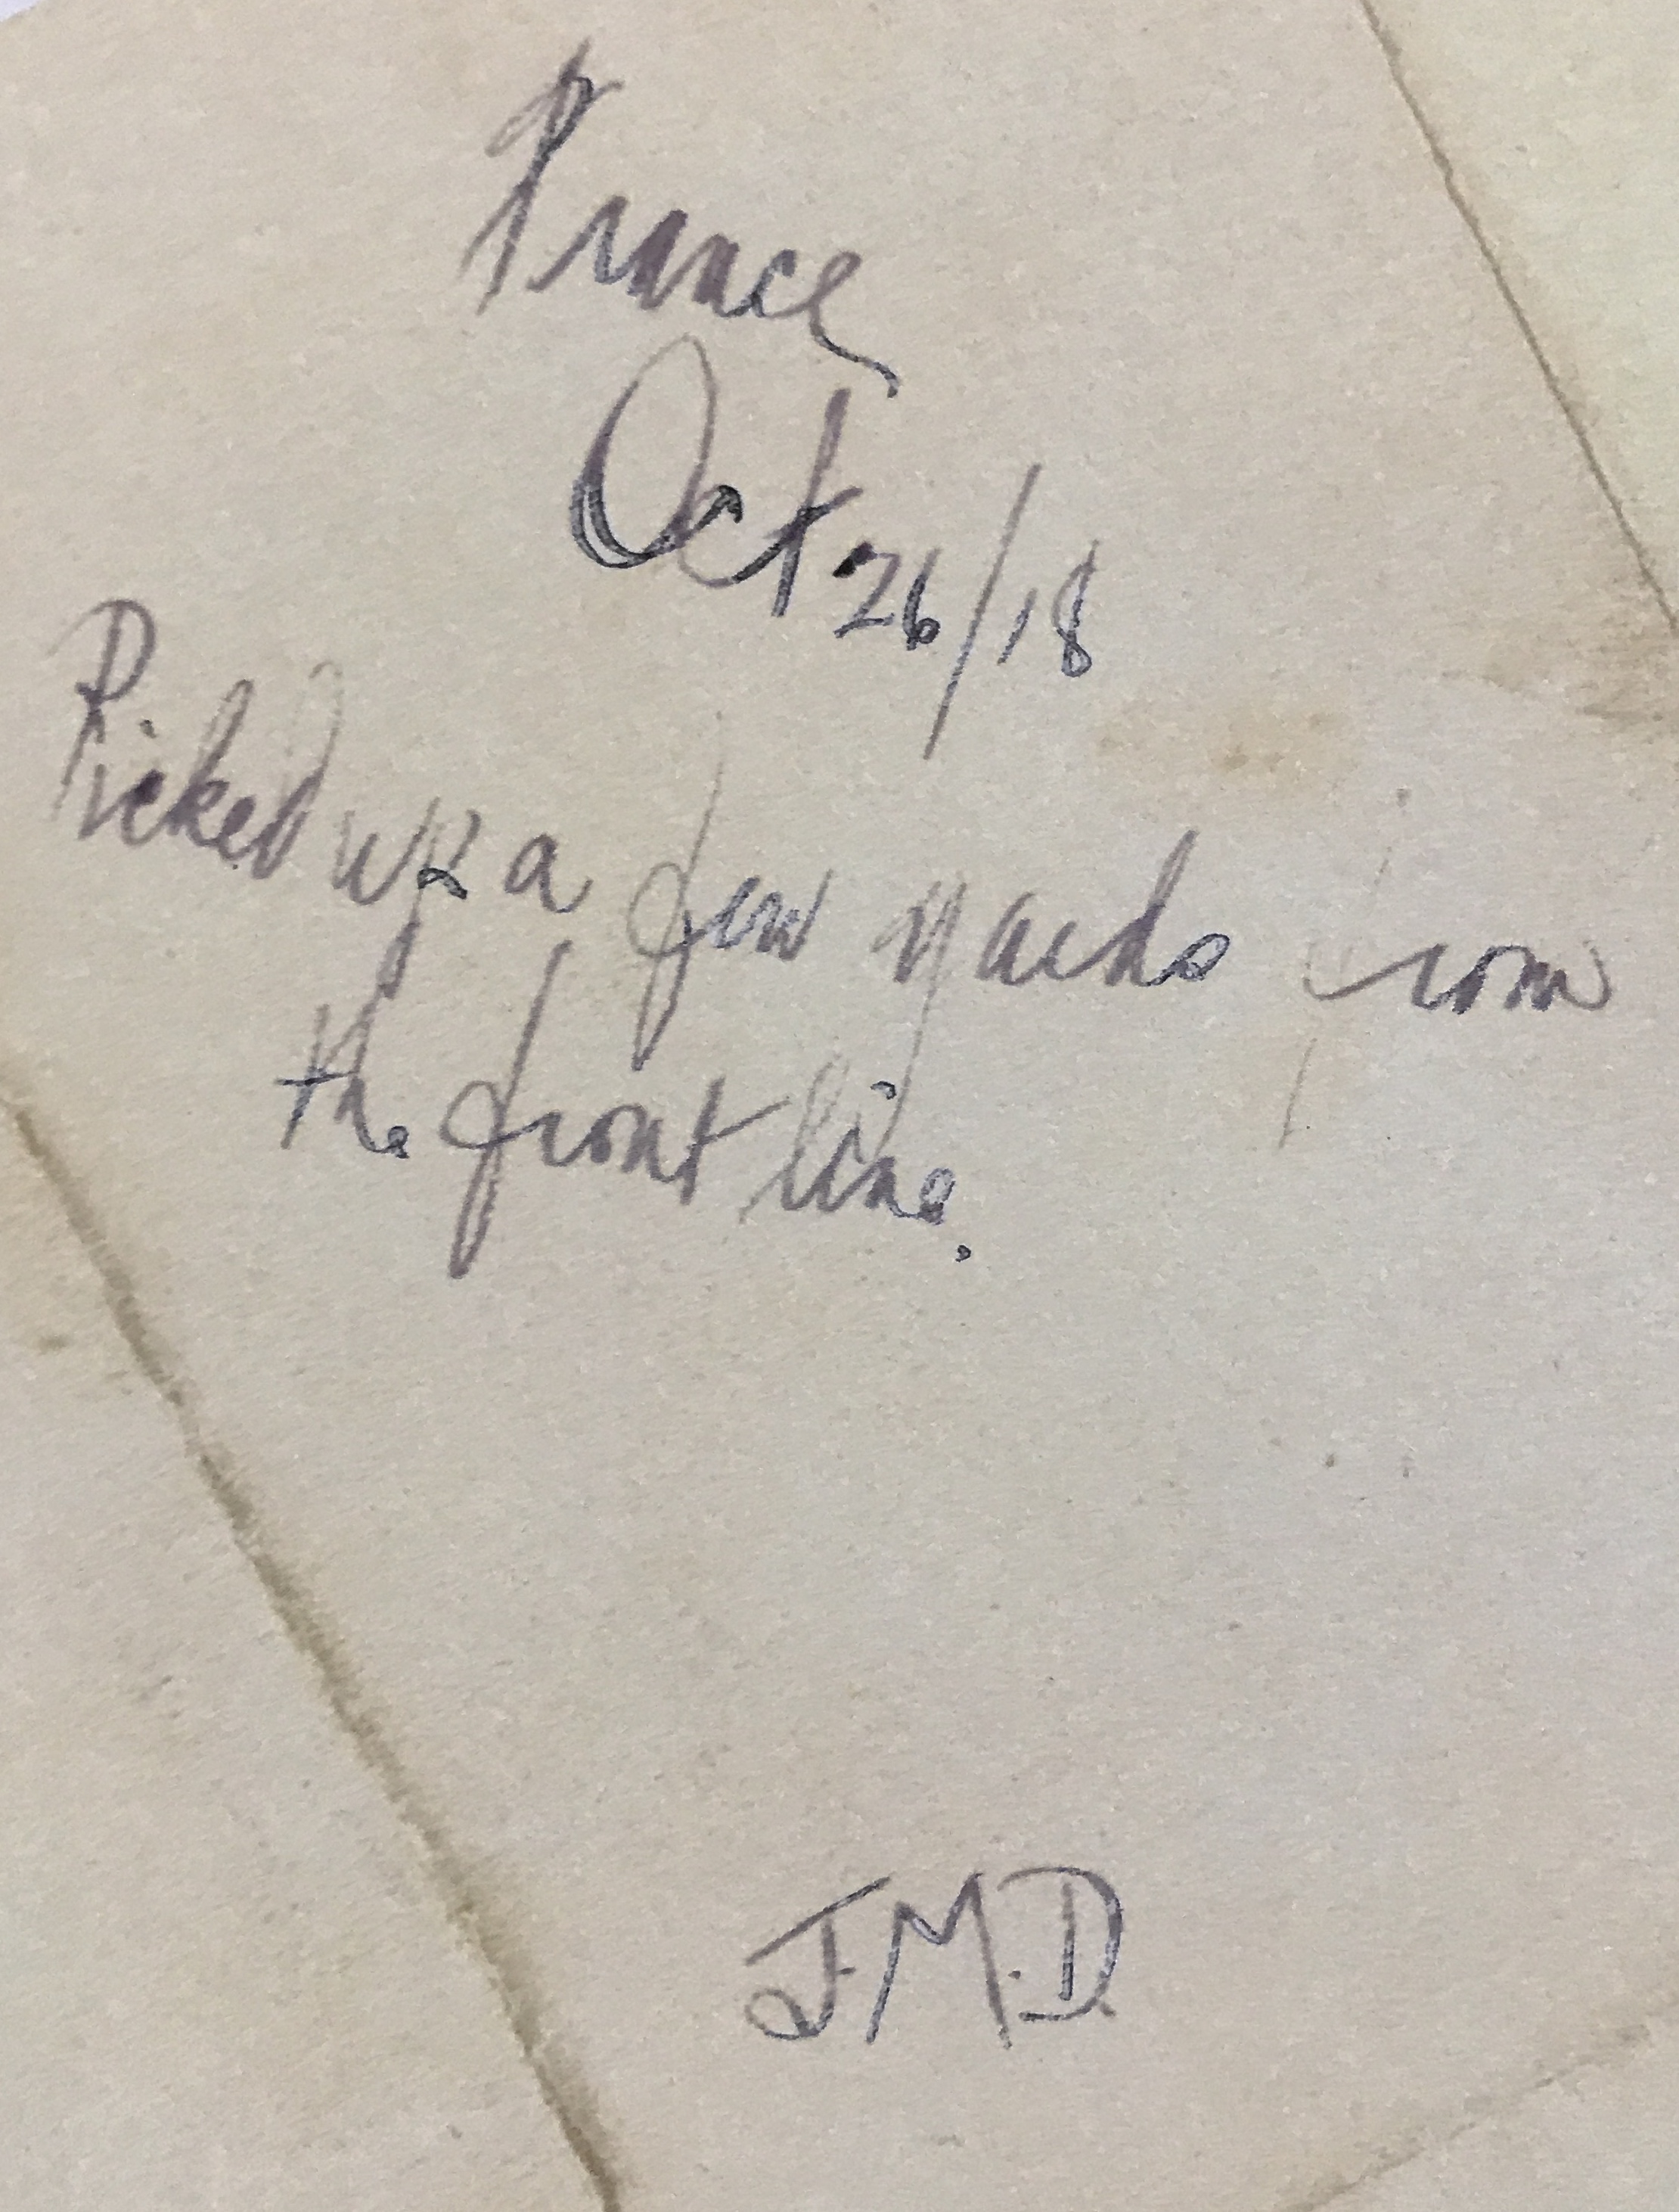 France
Oct 26/18
Picked up a few yards from
the front line.
J.M.D.